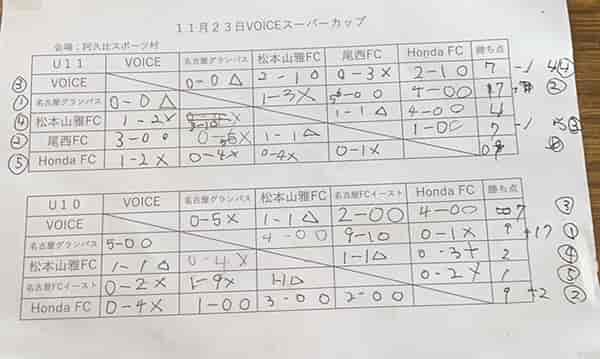 １１月２３日VOICEスーパーカップ
会場：阿久比スポーツ村
U11 VOICE 名古屋グランパス 松本山雅FC 尾西FC Honda FC 勝ち点
③ VOICE 0-0 △ 2-1 ○ 0-3 X 2-1 ○ 7 -1
① 名古屋グランパス 0-0 △ 1-3 X 0 4-0 ○ ②
④ 松本山雅FC 1-2 X X 1-1 △ 4-0 ○ 4
② 尾西FC 3-0 ○ 1-1 △ 1-0 ○ 7 -1
⑤ Honda FC 1-2 X 0-4 X 0-4 X 0-1 X 0
U10 VOICE 名古屋グランパス 松本山雅FC 名古屋FCイースト Honda FC 勝ち点
VOICE 0-5 X 1-1 △ 2-0 ○ 4-0 ○ 7 ③
名古屋グランパス 5-0 ○ 4-0 ○ 9-1 ○ 0-1 X 9 +17 ①
松本山雅FC 1-1 △ 0-4 X 1-1 △ 0-3 X 2 ④
名古屋FCイースト 0-2 X 1-9 X 1-1 △ 0-2 X 1 ⑤
Honda FC 0-4 X 1-0 ○ 3-0 ○ 2-0 ○ 9 +2 ②